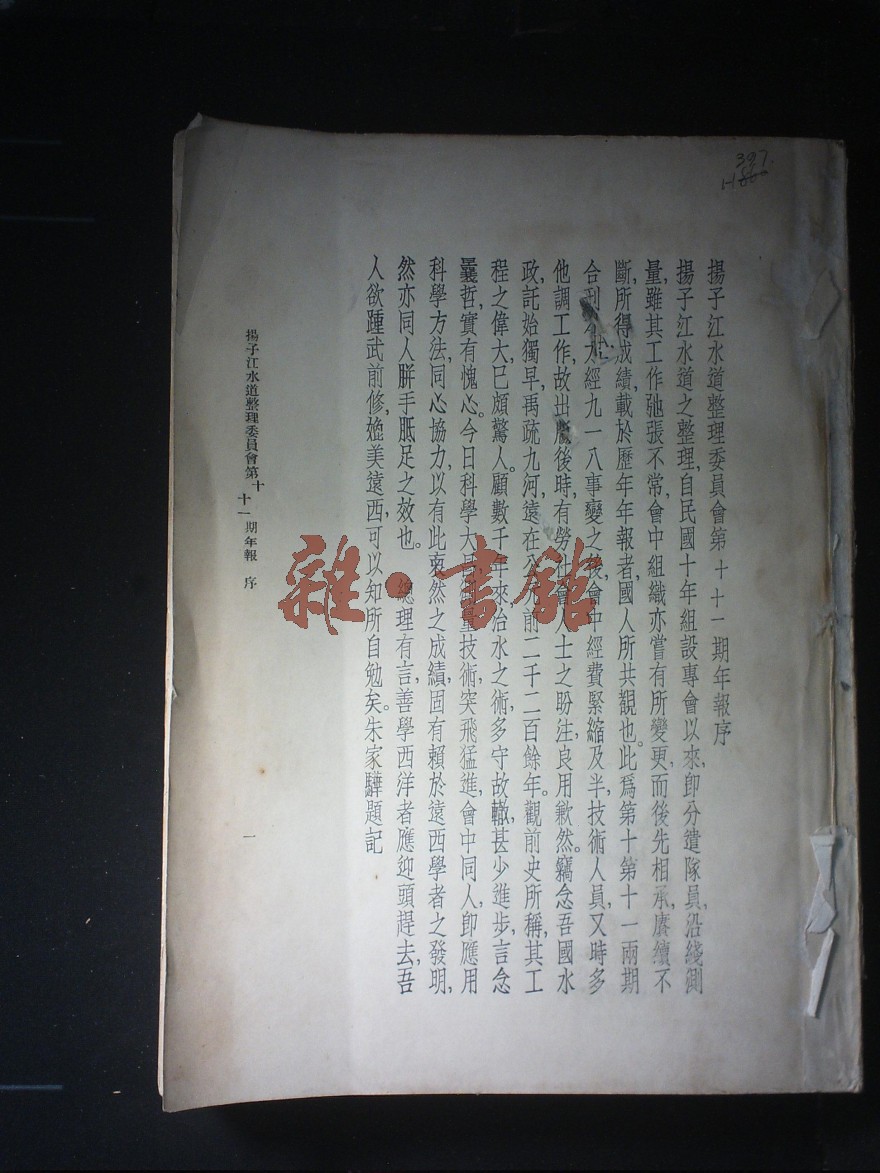 397.
揚子江水道整理委員會第十十一期年報序
揚子江水道之整理,自民國十年組設專會以來,即分遣隊員,沿綫測
量,雖其工作弛張不常,會中組織亦嘗有所變更,而後先相承,賡續不
斷,所得成績,載於歷年年報者,國人所共覩也。此爲第十第十一兩期
合刊,經九一八事變之後,會中經費緊縮及半,技術人員,又時多
他調工作,故出後時,有勞社會人士之盼注,良用歉然。竊念吾國水
政,託始獨早,禹疏九河,遠在公元前二千二百餘年。觀前史所稱,其工
程之偉大,已頗驚人。顧數千年來,治水之術,多守故轍,甚少進步,言念
曩哲,實有愧心。今日科學大昌,測量技術,突飛猛進,會中同人,即應用
科學方法,同心協力,以有此裒然之成績,固有賴於遠西學者之發明,
然亦同人胼手胝足之效也。總理有言,善學西洋者,應迎頭趕去,吾
人欲踵武前修,媲美遠西,可以知所自勉矣。朱家驊題記
揚子江水道整理委員會第十十一期年報 序
一
雜·書館